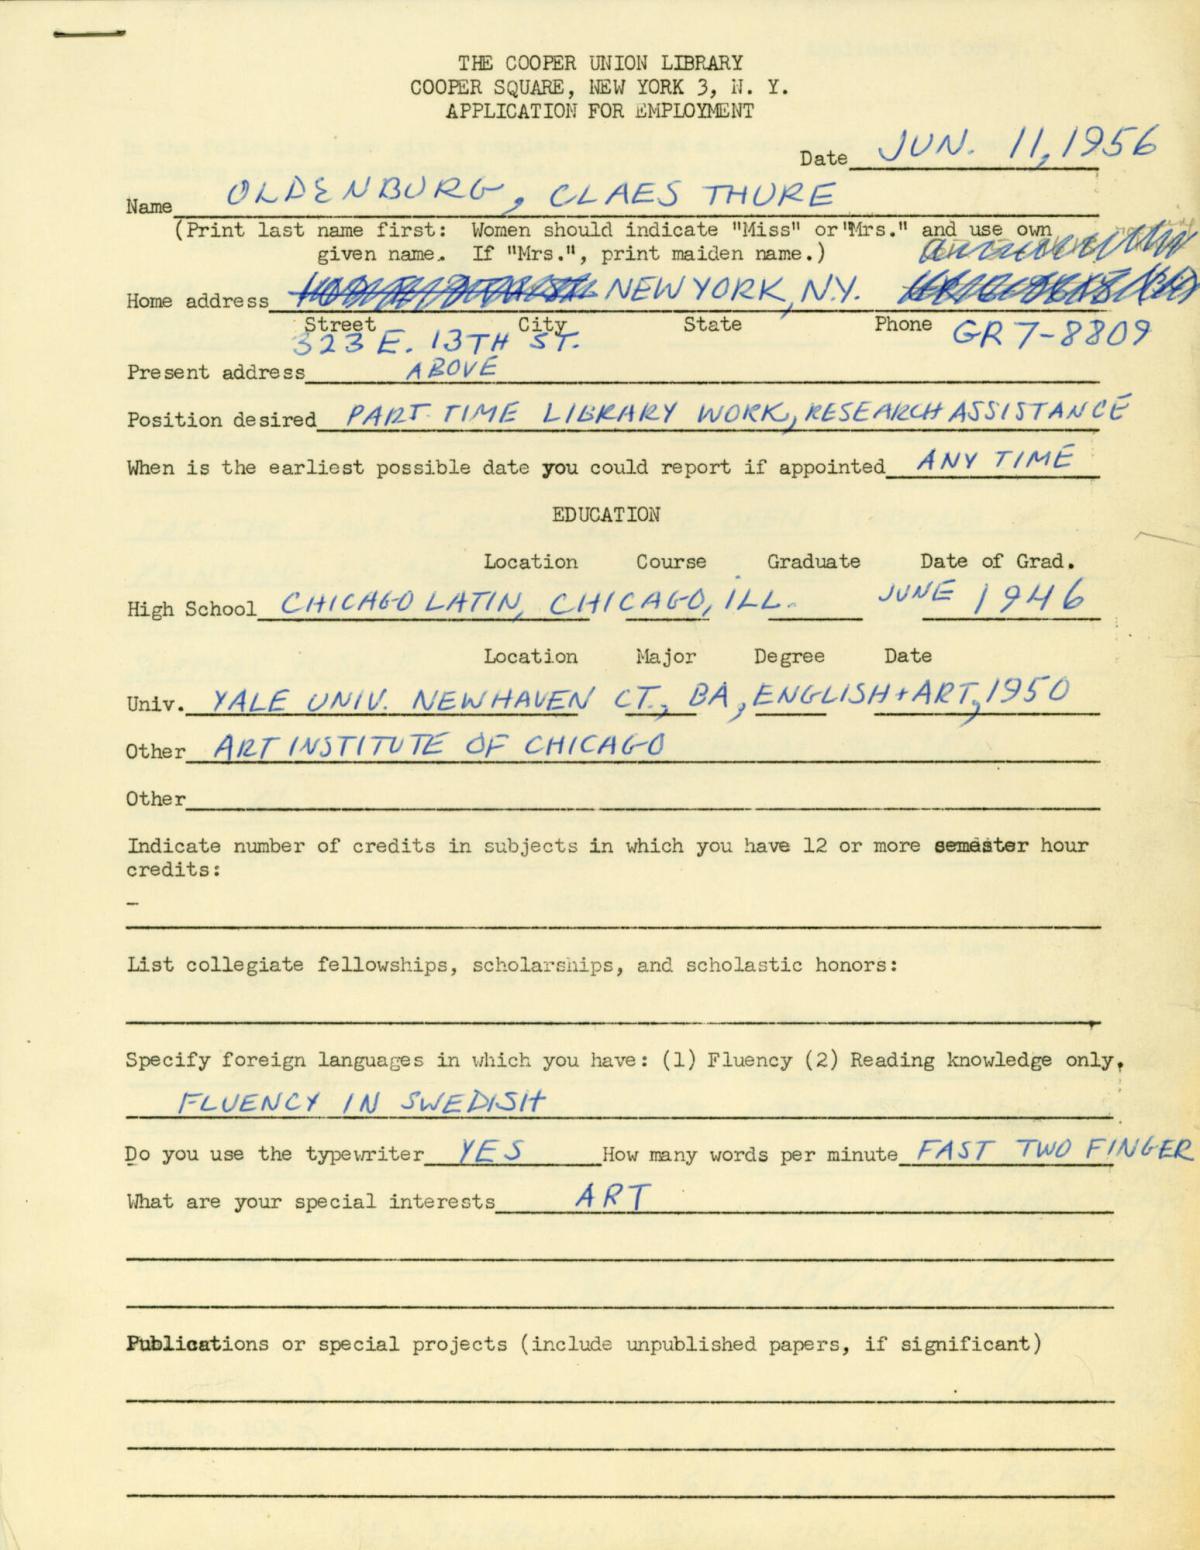 THE COOPER UNION LIBRARY
COOPER SQUARE, NEW YORK 3, N. Y.
APPLICATION FOR EMPLOYMENT
Date JUN. 11, 1956
Name OLDENBURG, CLAES THURE
(Print last name first: Women should indicate "Miss" or "Mrs." and use own
given name. If "Mrs.", print maiden name.)
Home address NEW YORK, N.Y.
Street City State Phone GR 7-8809
323 E. 13TH ST.
Present address ABOVE
Position desired PART-TIME LIBRARY WORK, RESEARCH ASSISTANCE
When is the earliest possible date you could report if appointed ANY TIME
EDUCATION
Location Course Graduate Date of Grad.
High School CHICAGO LATIN, CHICAGO, ILL. JUNE 1946
Location Major Degree Date
Univ. YALE UNIV. NEW HAVEN CT., BA, ENGLISH + ART, 1950
Other ART INSTITUTE OF CHICAGO
Other
Indicate number of credits in subjects in which you have 12 or more semester hour
credits:
–
List collegiate fellowships, scholarships, and scholastic honors:
Specify foreign languages in which you have: (1) Fluency (2) Reading knowledge only.
FLUENCY IN SWEDISH
Do you use the typewriter YES How many words per minute FAST TWO FINGER
What are your special interests ART
Publications or special projects (include unpublished papers, if significant)